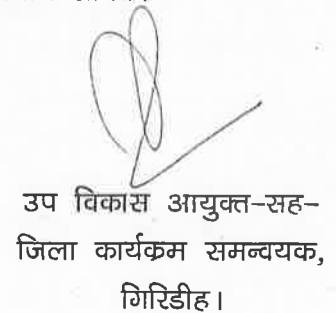 उप विकास आयुक्त-सह-
जिला कार्यक्रम समन्वयक,
गिरिडीह।